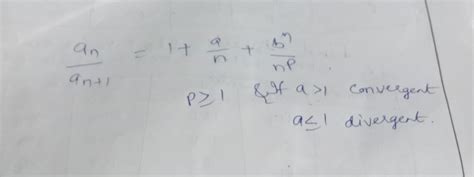 a_n / a_{n+1} = 1 + a/n + b^n / n^p .
p ≥ 1 & if a > 1 convergent
a ≤ 1 divergent.